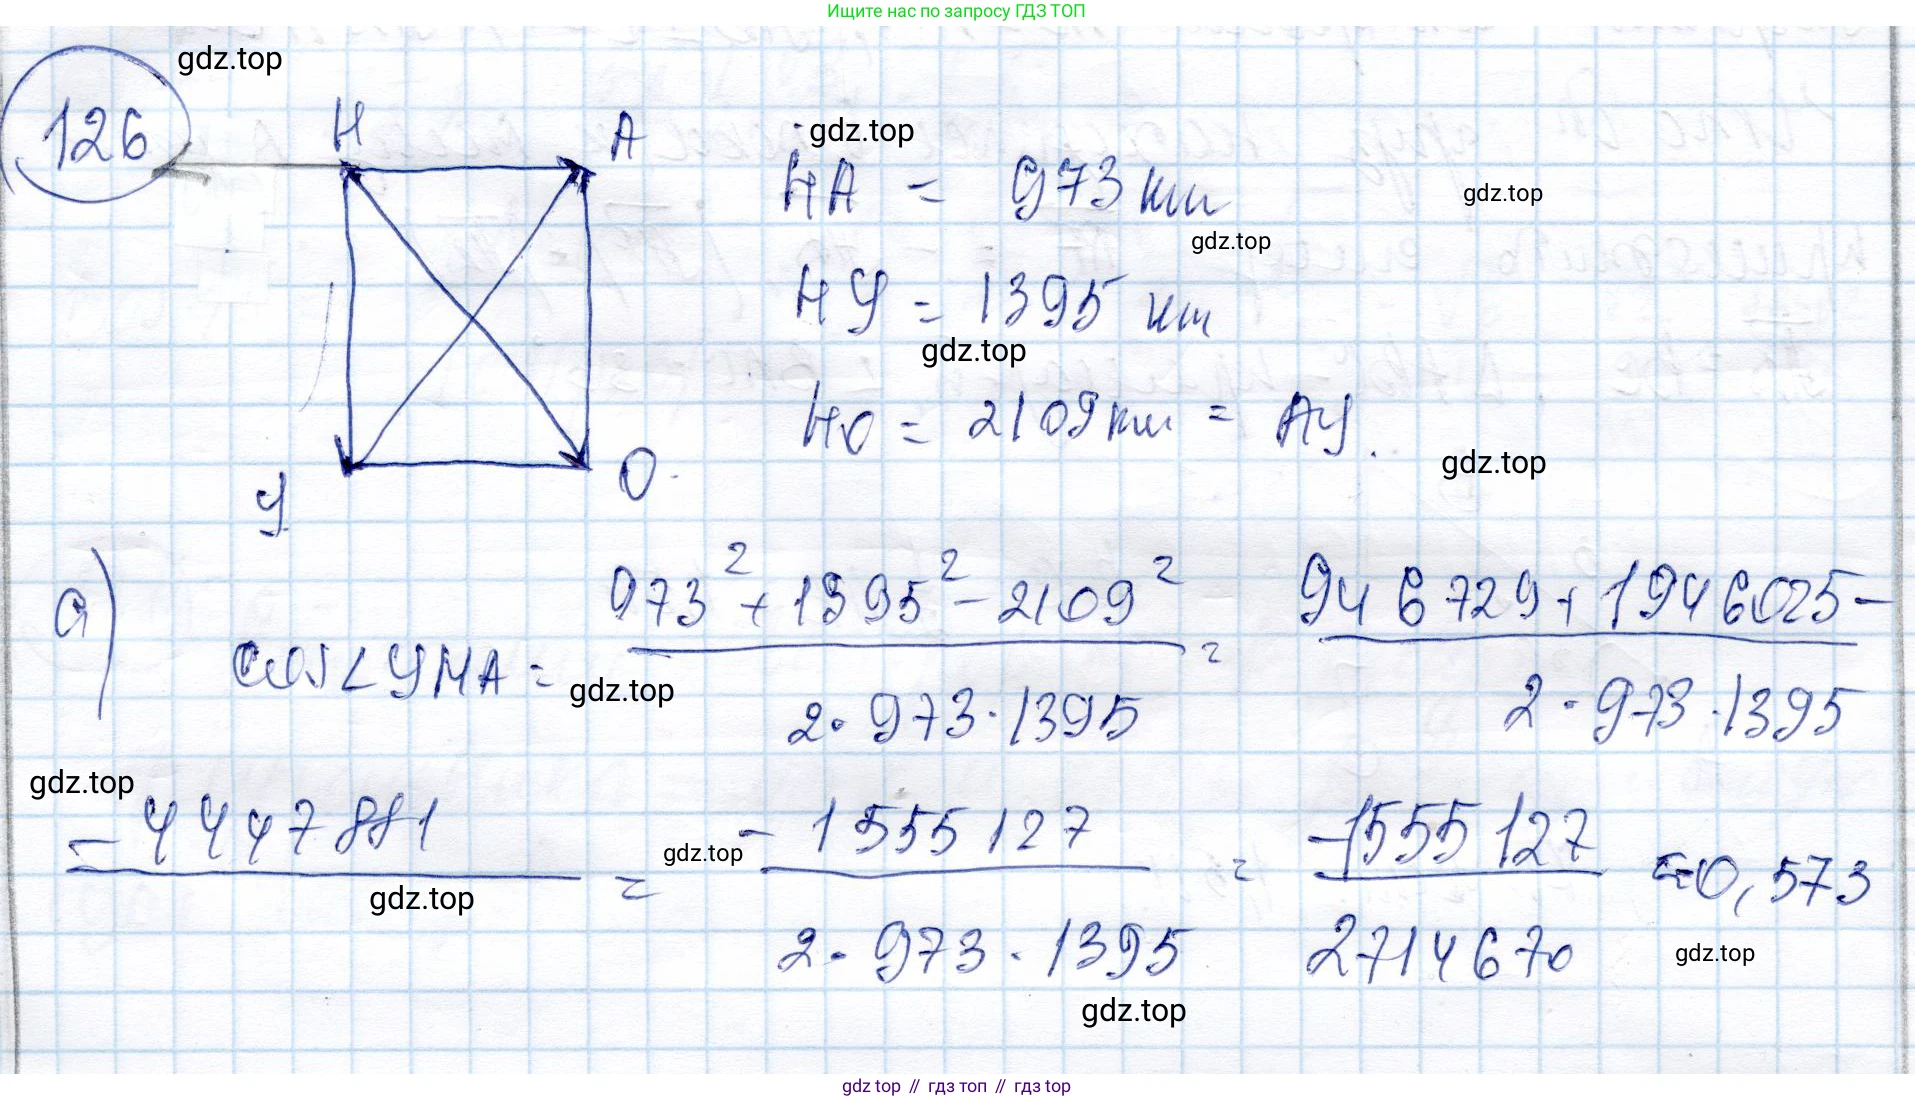 Ищите нас по запросу ГДЗ ТОП
gdz.top
126
Н
А
gdz.top
НА = 973 км
gdz.top
gdz.top
НУ = 1395 км
gdz.top
НО = 2109 км = АУ.
gdz.top
У
О
а)
cos∠УНА = (973² + 1395² - 2109²) / (2·973·1395) = (946729 + 1946025 -
gdz.top
2·973·1395
gdz.top
- 4447881 = -1555127 / (2·973·1395) = -1555127 / 2714670 ≈ -0,573
gdz.top
gdz.top
gdz.top
gdz.top
gdz top // гдз топ // гдз top